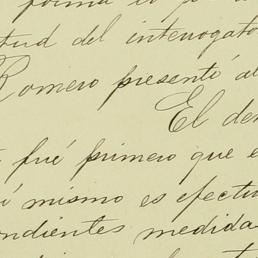 forma
tud del interrogato
Romero presentó al
El den
fué primero que e
í mismo es efectu
ndientes medida